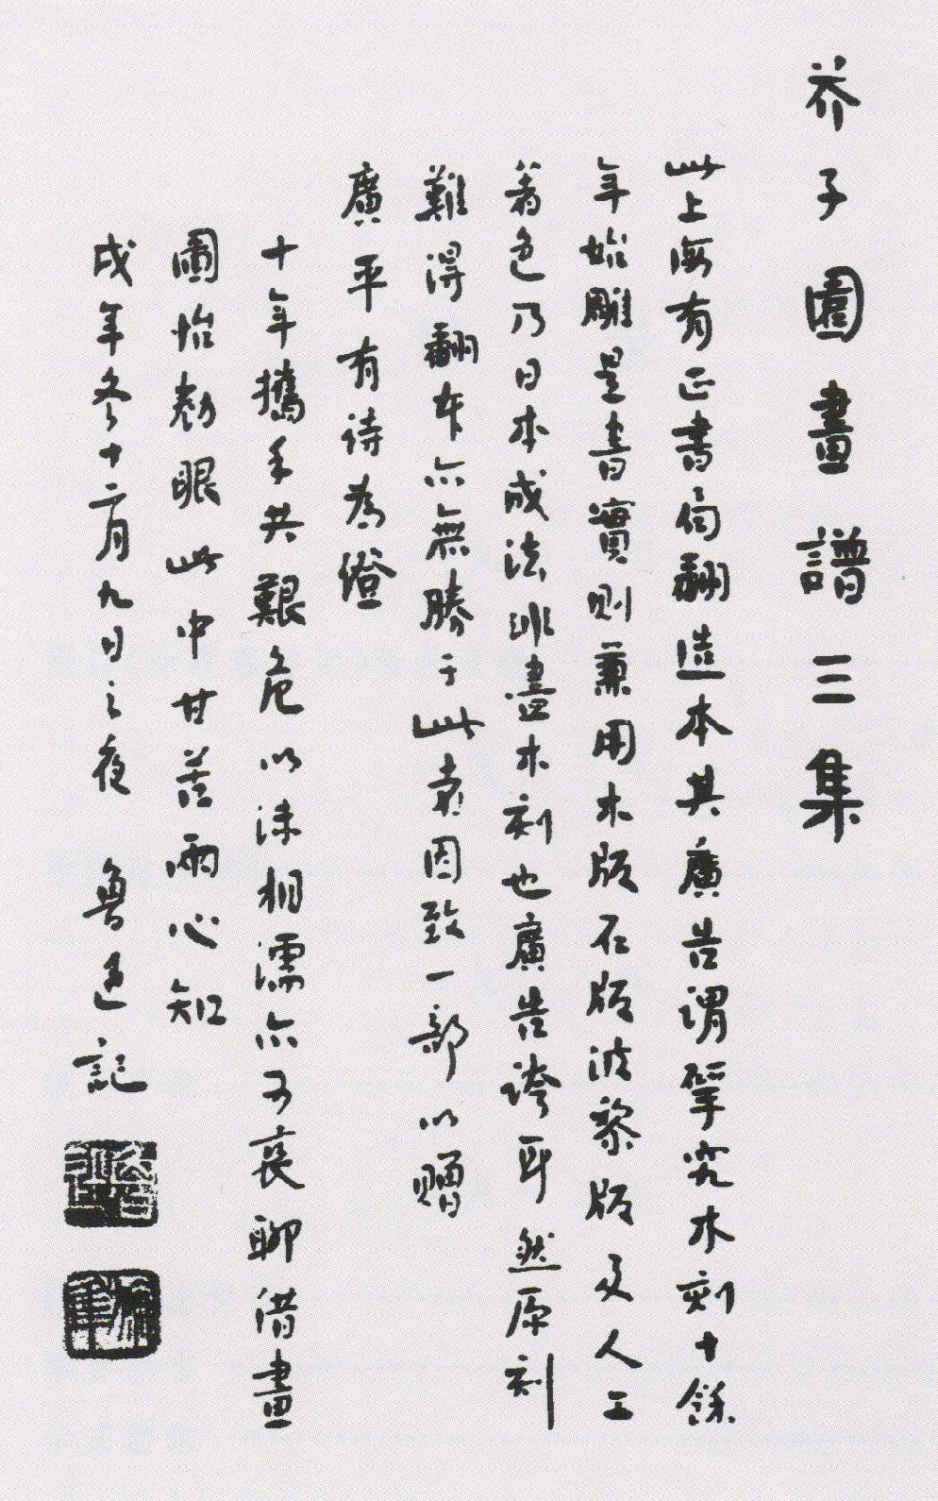 芥子園畫譜三集
此上海有正書局翻造本其廣告謂揅究木刻十餘
年始雕是書實則兼用木版石版波黎版及人工
着色乃日本成法非盡木刻也廣告誇耳然原刻
難得翻本亦無勝于此者因致一部以贈
廣平有詩為證
十年攜手共艱危以沫相濡亦可哀聊借畫
圖怡勌眼此中甘苦兩心知
戌年冬十二月九日之夜 魯迅記